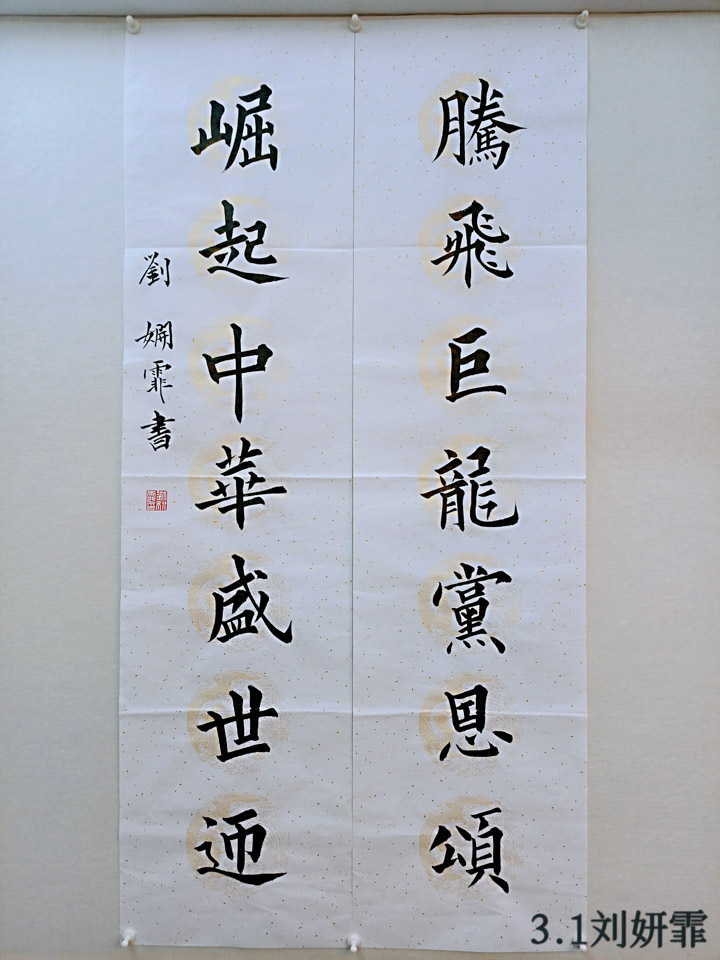 騰飛巨龍黨恩頌
崛起中華盛世迊
劉嫻霏書
3.1刘妍霏